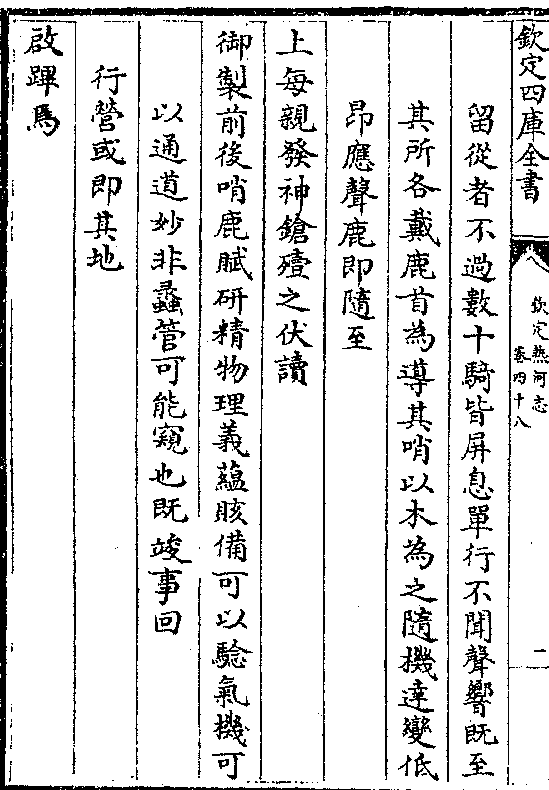 欽定四庫全書
欽定熱河志
卷四十八
二
留從者不過數十騎皆屏息單行不聞聲響既至
其所各戴鹿首為導其哨以木為之隨機達變低
昂應聲鹿即隨至
上每親發神鎗殪之伏讀
御製前後哨鹿賦研精物理義蘊賅備可以驗氣機可
以通道妙非蠡管可能窺也既竣事回
行營或即其地
啟蹕焉